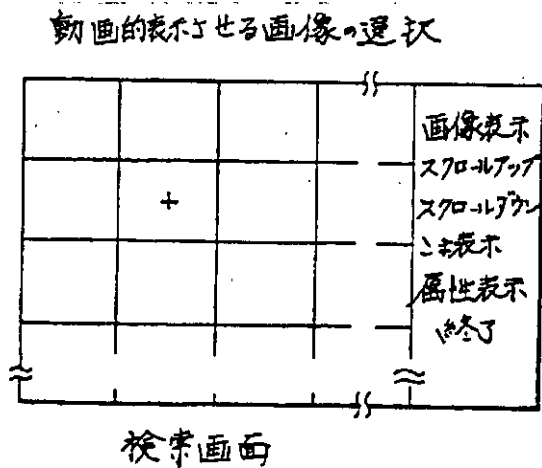 動画的表示させる画像の選択
画像表示
スクロールアップ
スクロールダウン
こま表示
属性表示
終了
検索画面